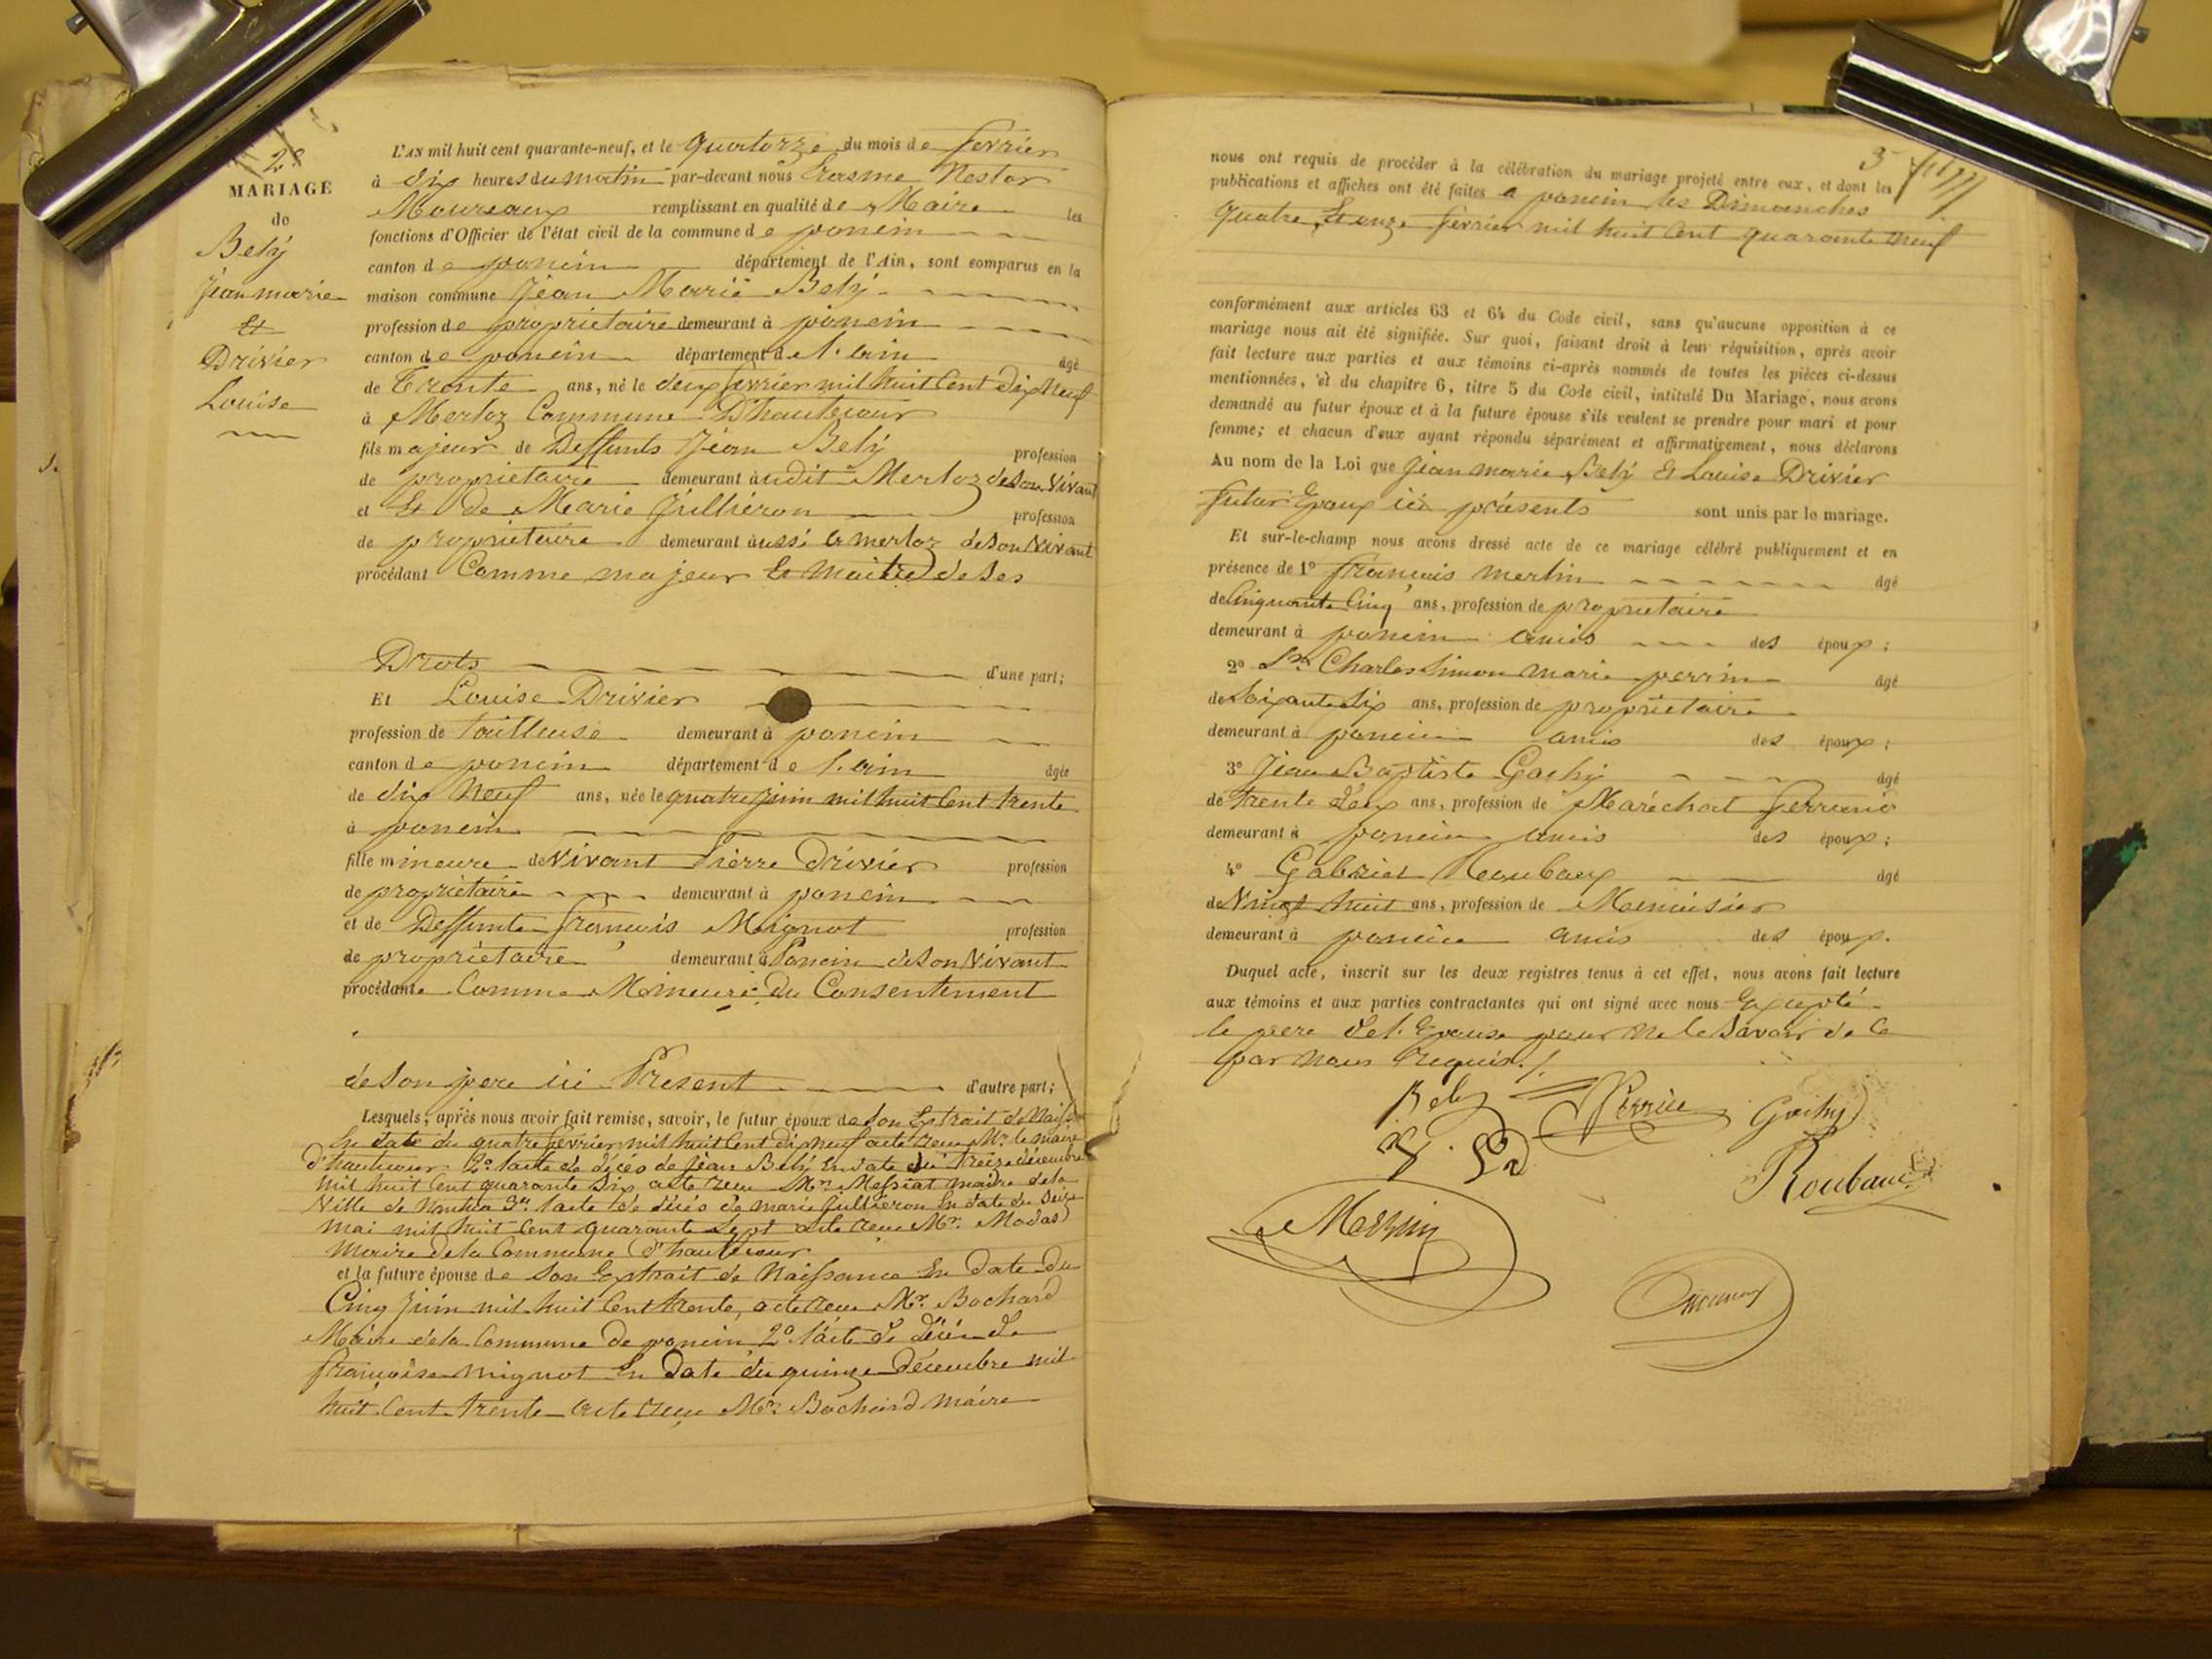 28
MARIAGE
de
Bely
Jean marie
Et
Drivier
Louise
L'AN mil huit cent quarante-neuf, et le quatorze du mois de fevrier
à dix heures du matin par-devant nous Erasme Nestor
Moureaux remplissant en qualité de Maire les
fonctions d'Officier de l'état civil de la commune de poncin
canton de poncin département de l'Ain, sont comparus en la
maison commune Jean Marie Bely
profession de proprietaire demeurant à poncin
canton de poncin département de l'ain âgé
de Trente ans, né le deux fevrier mil huit Cent dix Neuf
à Merloz Commune D'hautecour
fils majeur de Deffunts Jean Bely profession
de proprietaire demeurant audit Merloz de Son Vivant
et Et de Marie Jullieron profession
de proprietaire demeurant aussi a merloz de Son Vivant
procédant Comme majeur Et Maitre de Ses
Drots d'une part;
Et Louise Drivier
profession de Tailleuse demeurant à poncin
canton de poncin département de l'ain âgée
de dix Neuf ans, née le quatre Juin mil huit Cent trente
à poncin
fille mineure de Vivant Pierre Drivier profession
de proprietaire demeurant à poncin
et de Deffunte francois Mignot profession
de proprietaire demeurant à Poncin de Son Vivant
procédante Comme Mineure Du Consentement
de Son pere ici Présent d'autre part;
Lesquels, après nous avoir fait remise, savoir, le futur époux de Son Extrait de Naiss
En date du quatre fevrier mil huit Cent dix neuf acte recu Mr. le maire
d'hautecour 2º l'acte de décés de Jean Bely En date du Treize décembre
mil huit Cent quarante Six acte recu Mr. Messiat maire de la
Ville de Nantua 3º l'acte de décés de marie Jullieron En date du Seize
mai mil huit Cent quarante Sept acte recu Mr. Modas
maire de la Commune d'hautecour
et la future épouse de Son Extrait de Naissance En date du
Cinq Juin mil huit Cent trente, acte recu Mr. Bochard
Maire de la Commune de poncin 2º l'acte de décés de
françoise mignot En date du quinze Décembre mil
huit Cent trente acte recu Mr. Bochard maire
3
nous ont requis de procéder à la célébration du mariage projeté entre eux, et dont les
publications et affiches ont été faites a poncin les Dimanches
quatre Et onze fevrier mil huit Cent quarante Neuf
conformément aux articles 63 et 64 du Code civil, sans qu'aucune opposition à ce
mariage nous ait été signifiée. Sur quoi, faisant droit à leur réquisition, après avoir
fait lecture aux parties et aux témoins ci-après nommés de toutes les pièces ci-dessus
mentionnées, et du chapitre 6, titre 5 du Code civil, intitulé Du Mariage, nous avons
demandé au futur époux et à la future épouse s'ils veulent se prendre pour mari et pour
femme; et chacun d'eux ayant répondu séparément et affirmativement, nous déclarons
Au nom de la Loi que Jean marie Bely Et Louise Drivier
futur Epoux ici présents sont unis par le mariage.
Et sur-le-champ nous avons dressé acte de ce mariage célébré publiquement et en
présence de 1º francois merlin âgé
de Cinquante Cinq ans, profession de proprietaire
demeurant à poncin amis des époux;
2º Sr. Charles Simon marie perrin âgé
de Soixante Six ans, profession de proprietaire
demeurant à poncin amis des époux;
3º Jean Baptiste Gachy âgé
de Trente deux ans, profession de Maréchal ferrand
demeurant à poncin amis des époux;
4º Gabriel Roubaux âgé
de Vingt huit ans, profession de Menuisier
demeurant à poncin amis des époux.
Duquel acte, inscrit sur les deux registres tenus à cet effet, nous avons fait lecture
aux témoins et aux parties contractantes qui ont signé avec nous Excepté
le pere de l'Epouse pour Ne le Savoir de Ce
par Nous requis./.
Bely Perrin Gachy
Roubaux
Merlin